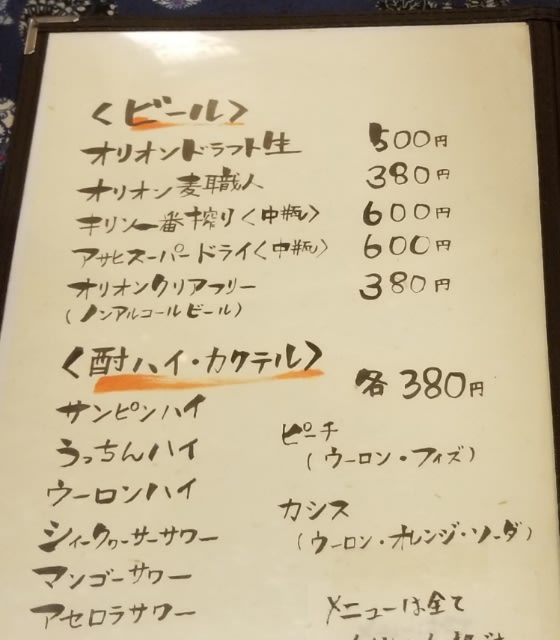 〈ビール〉
オリオンドラフト生 500円
オリオン麦職人 380円
キリン一番搾り〈中瓶〉 600円
アサヒスーパードライ〈中瓶〉 600円
オリオンクリアフリー 380円
(ノンアルコールビール)
〈酎ハイ・カクテル〉 各380円
サンピンハイ
うっちんハイ
ウーロンハイ
シィークヮーサーサワー
マンゴーサワー
アセロラサワー
ピーチ
(ウーロン・フィズ)
カシス
(ウーロン・オレンジ・ソーダ)
メニューは全て